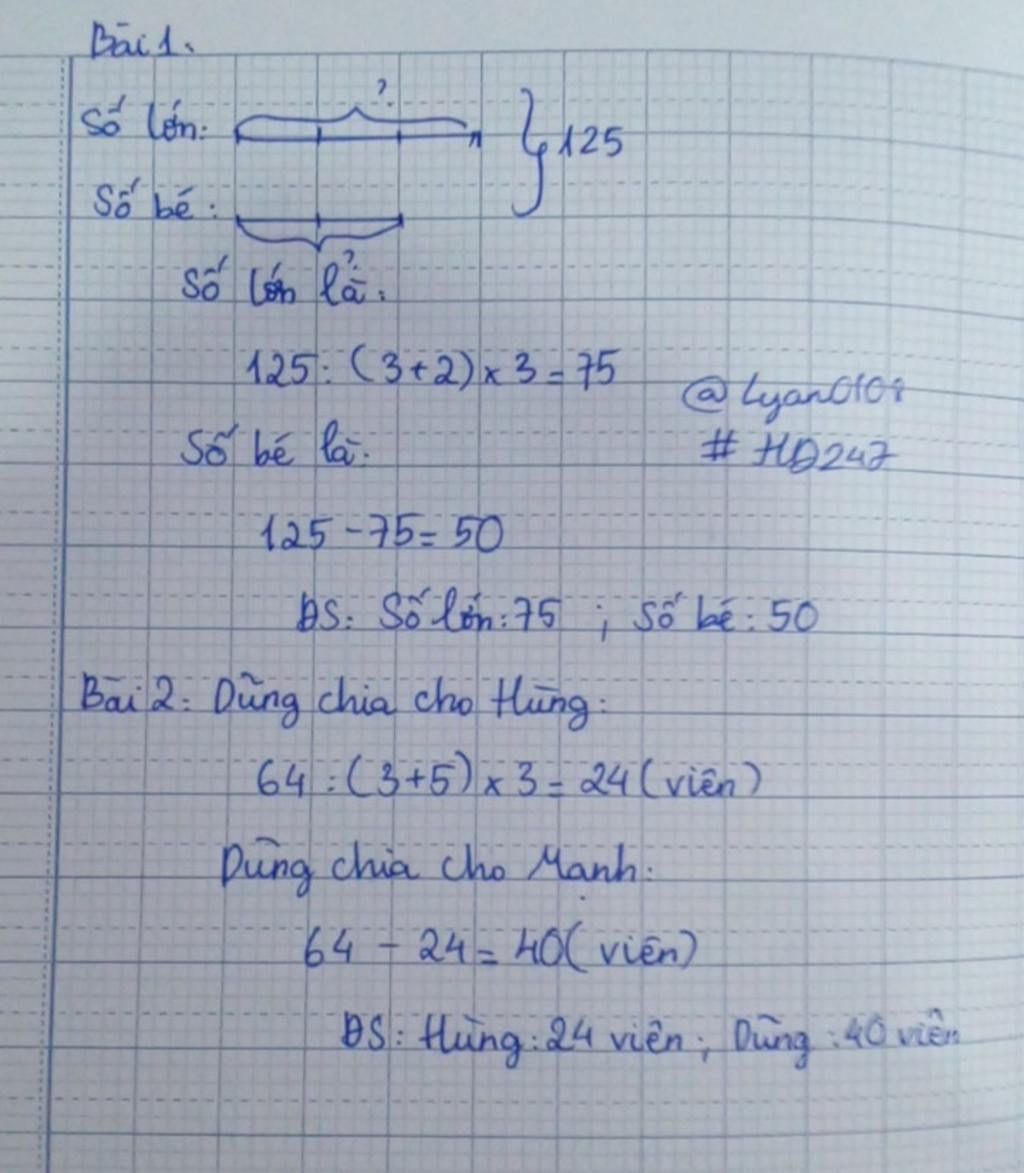 Bài 1.
?
Số lớn:
} 125
Số bé:
?
Số lớn là:
125 : (3+2) x 3 = 75
@Lyan0108
Số bé là:
# HD247
125 - 75 = 50
ĐS: Số lớn: 75 ; Số bé: 50
Bài 2: Dũng chia cho Hùng:
64 : (3+5) x 3 = 24 (viên)
Dũng chia cho Mạnh:
64 - 24 = 40 (viên)
ĐS: Hùng: 24 viên; Dũng: 40 viên